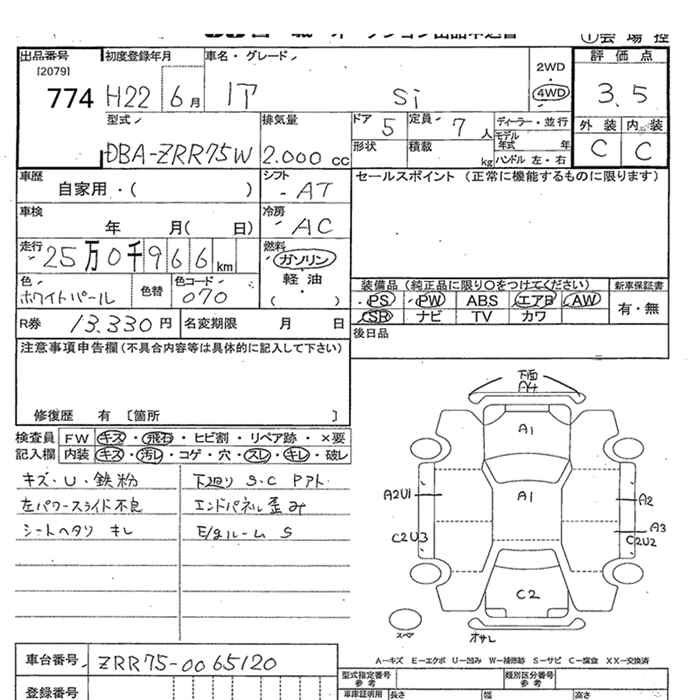 出品番号
[2079]
774
初度登録年月
H22 6月
車名・グレード
Si
2WD
・
4WD
評価点
3.5
外装 内装
C C
型式
DBA-ZRR75W
排気量
2.000 cc
ドア 5
定員 7人
ディーラー・並行
モデル年式 年
形状
積載 kg
ハンドル 左・右
車歴
自家用・( )
シフト
AT
セールスポイント (正常に機能するものに限ります)
車検
年 月( 日)
冷房
AC
走行
25万0千966km
燃料
ガソリン
・
軽油
( )
色
ホワイトパール
色替
色コード
070
装備品 (純正品に限り○をつけてください)
新車保証書
PS PW ABS エアB AW
有・無
SR ナビ TV カワ
R券 13.330円
名変期限 月 日
後日品
注意事項申告欄(不具合内容等は具体的に記入して下さい)
修復歴 有 〔箇所 〕
検査員 FW キズ・飛石・ヒビ割・リペア跡・×要
記入欄 内装 キズ・汚レ・コゲ・穴・スレ・キレ・破レ
キズ・U・鉄粉
左パワースライド不良
シートヘタリ キレ
下廻り S・C Pアト
エンドパネル歪み
E/gルーム S
下面
A4
A1
A2U1
A1
A2
C2U3
A3
C2U2
C2
スペア
オサレ
A-キズ E-エクボ U-凹み W-補修跡 S-サビ C-腐食 XX-交換済
車台番号 ZRR75-0065120
登録番号
型式指定番号
参考
類別区分番号
参考
車庫証明用
長さ
幅
高さ